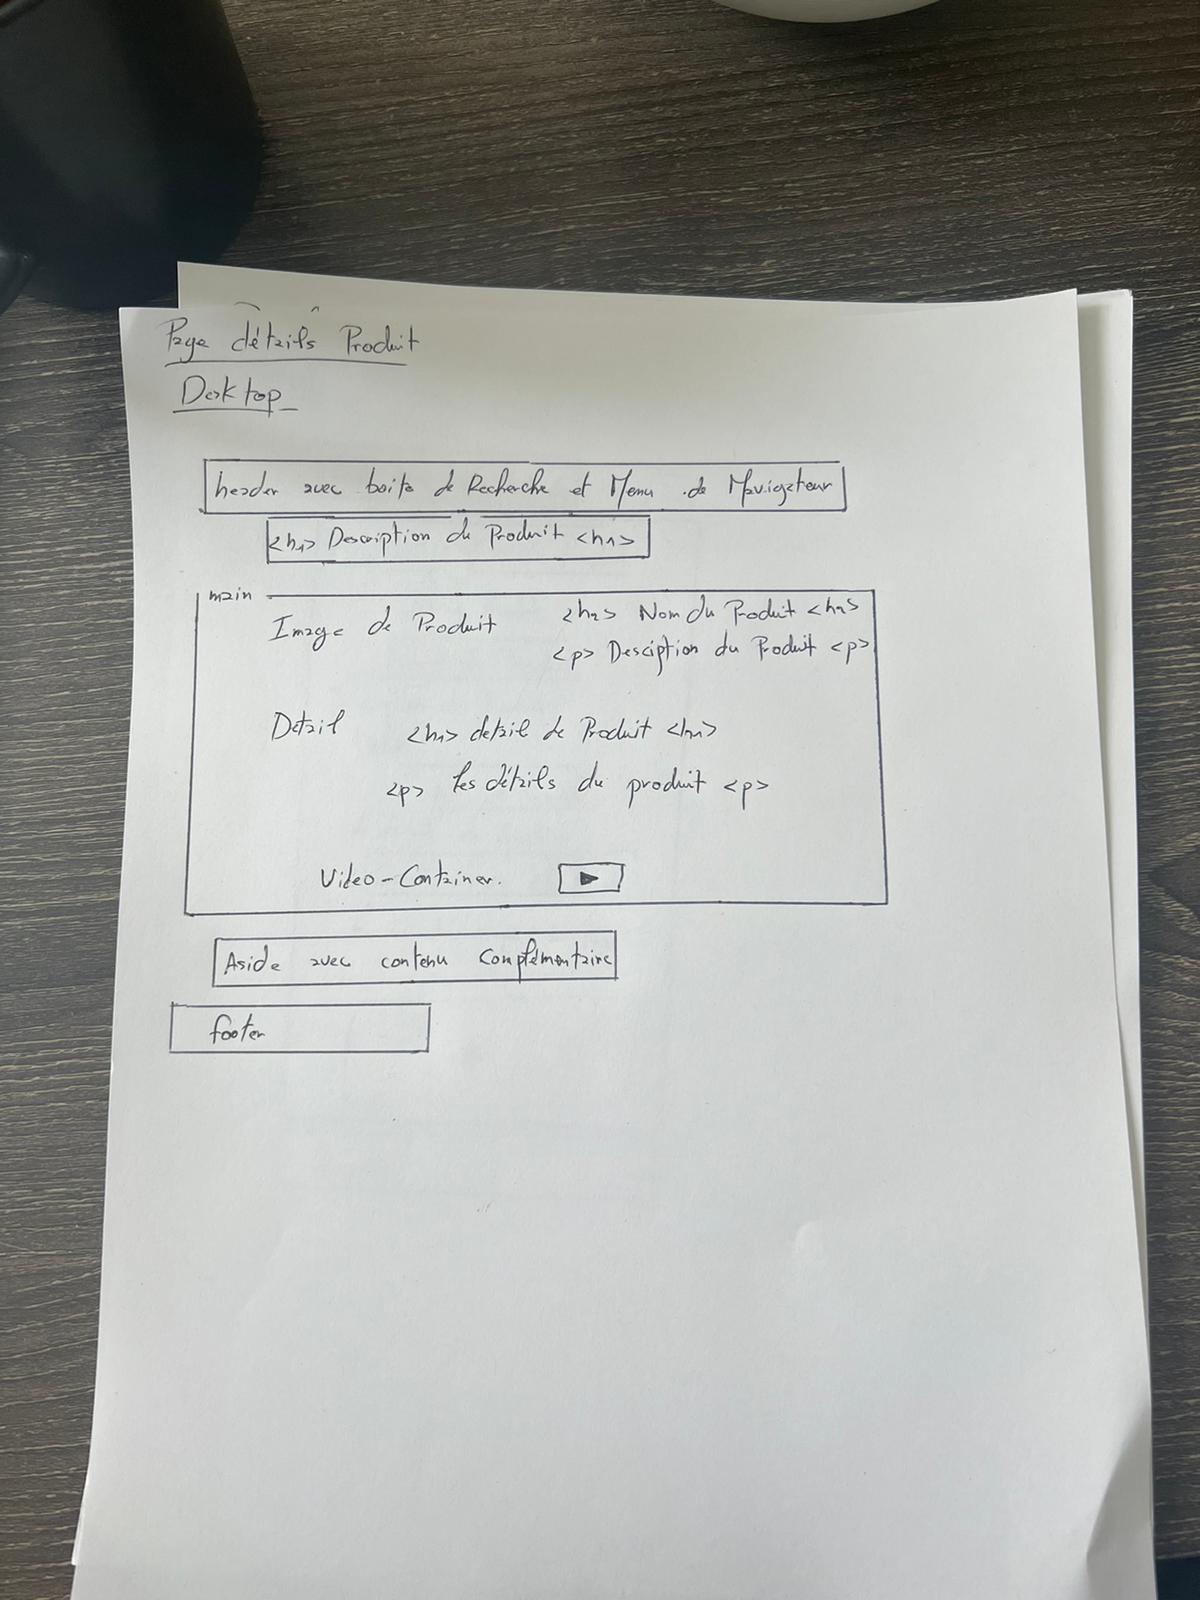 Page détails Produit
Desktop
header avec boite de Recherche et Menu de Navigateur
<h1> Description du Produit <h1>
main
Image de Produit <h2> Nom du Produit <h2>
<p> Desciption du Produit <p>
Detail <h1> detail de Produit <h1>
<p> les détails du produit <p>
Video-Container.
Aside avec contenu Complémentaire
footer